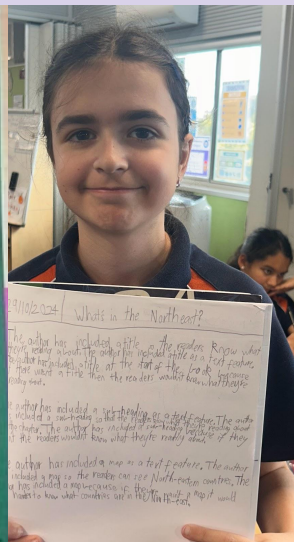 29/10/2024 What's in the Northeast?
The author has included a title so the readers know what
they're reading about. The author has included a title as a text feature.
author has included a title at the start of the book because
that wasn't a title then the readers wouldn't know what they're
reading about.
e author has included a sub-heading as a text feature. The autho
included a sub-heading so that the readers know what they're reading about
chapter. The author has included a sub-heading because if they
the readers wouldn't know what they're reading about.
e author has included a map as a text feature. The author
included a map so the readers can see North-eastern countries. The
or has included a map because if there wasn't a map it would
hard to know what countries are in the North-east.